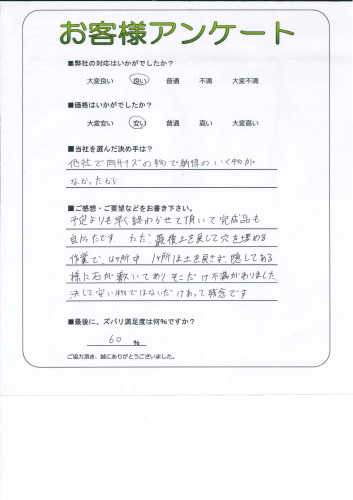 お客様アンケート
■弊社の対応はいかがでしたか？
大変良い 良い 普通 不満 大変不満
■価格はいかがでしたか？
大変安い 安い 普通 高い 大変高い
■当社を選んだ決め手は？
他社で同サイズの物で納得のいく物が
なかったから
■ご感想・ご要望などをお書き下さい。
予定よりも早く終わらせて頂いて完成品も
良かったです。ただ、最後土を戻して穴を埋める
作業で、4ヶ所中 1ヶ所は土を戻さず、隠してある
様に石が敷いてありそこだけ不満がありました。
決して安い物ではないだけあって残念です
■最後に、ズバリ満足度は何%ですか？
60 %
ご協力頂き、誠にありがとうございました。